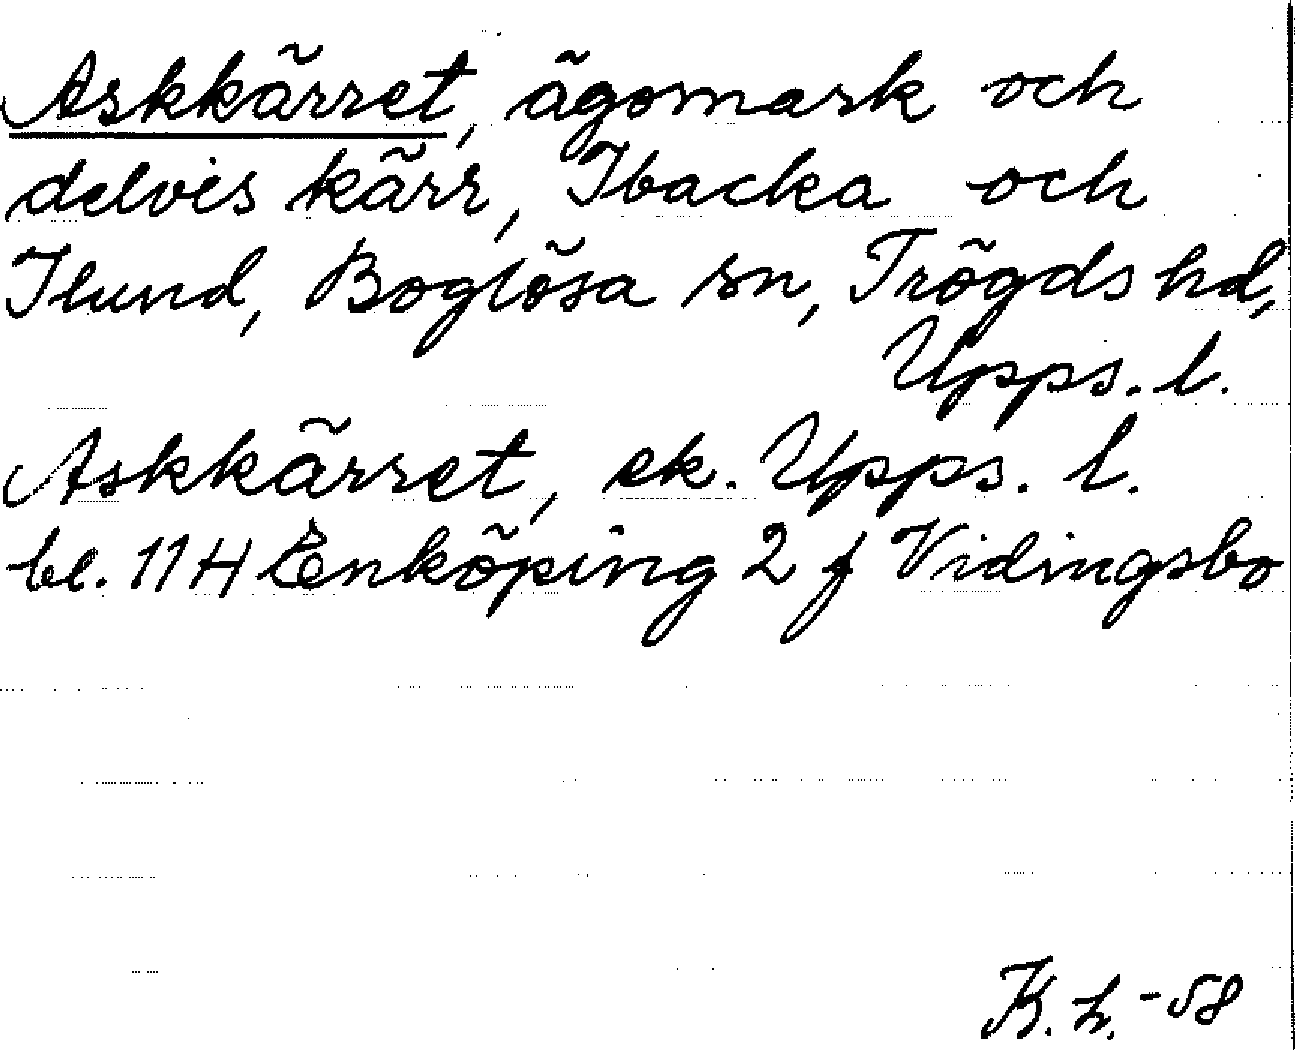 Askkärret, ägomark och
delvis kärr, Ibacka och
Ilund, Boglösa sn, Trögds hd,
Upps. l.
Askkärret, ek. Upps. l.
bl. 11 H Enköping 2 f Vidingsbo
K. h. -58